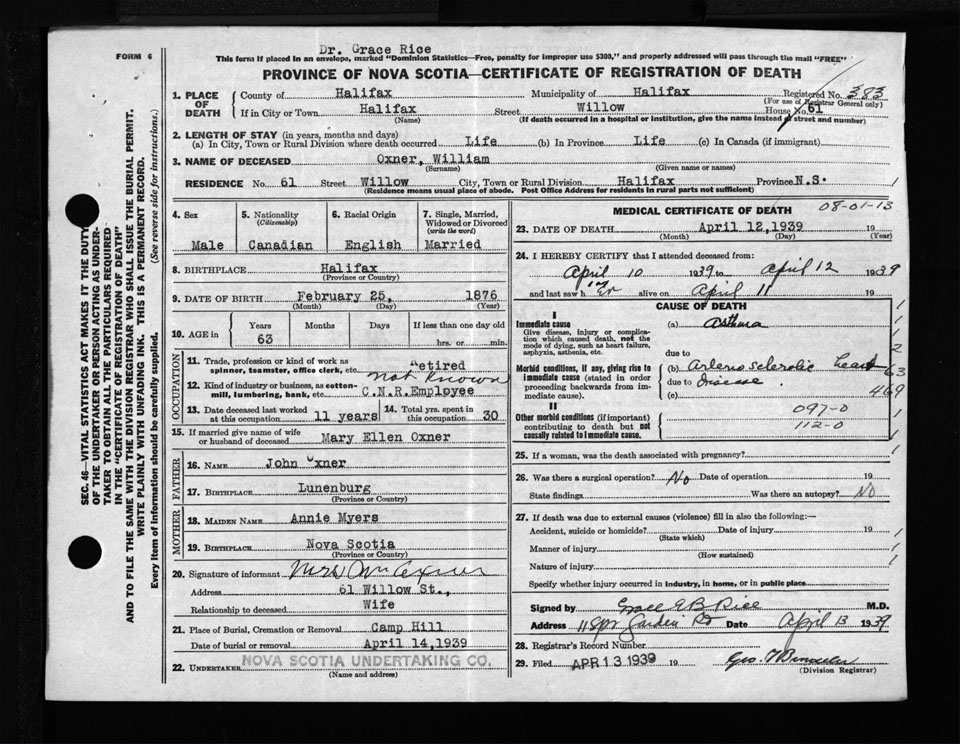 Dr. Grace Rice
FORM 6
This form if placed in an envelope, marked "Dominion Statistics—Free, penalty for improper use $300," and properly addressed will pass through the mail "FREE"
PROVINCE OF NOVA SCOTIA—CERTIFICATE OF REGISTRATION OF DEATH
1. PLACE OF DEATH
County of Halifax Municipality of Halifax Registered No. 383
(For use of Registrar General only)
If in City or Town Halifax Street Willow House No. 61
(Name) (If death occurred in a hospital or institution, give the name instead of street and number)
2. LENGTH OF STAY (in years, months and days)
(a) In City, Town or Rural Division where death occurred Life (b) In Province Life (c) In Canada (if immigrant)
3. NAME OF DECEASED Oxner, William
(Surname) (Given name or names)
RESIDENCE No. 61 Street Willow City, Town or Rural Division Halifax Province N.S.
(Residence means usual place of abode. Post Office Address for residents in rural parts not sufficient)
4. Sex
Male
5. Nationality
(Citizenship)
Canadian
6. Racial Origin
English
7. Single, Married, Widowed or Divorced
(write the word)
Married
8. BIRTHPLACE Halifax
(Province or Country)
9. DATE OF BIRTH February 25, 1876
(Month) (Day) (Year)
10. AGE in
Years Months Days If less than one day old
63 hrs. or min.
OCCUPATION
11. Trade, profession or kind of work as spinner, teamster, office clerk, etc. Retired
not known
12. Kind of industry or business, as cotton-mill, lumbering, bank, etc. C.N.R.Employee
13. Date deceased last worked at this occupation 11 years
14. Total yrs. spent in this occupation 30
15. If married give name of wife or husband of deceased Mary Ellen Oxner
FATHER
16. NAME John Oxner
17. BIRTHPLACE Lunenburg
(Province or Country)
MOTHER
18. MAIDEN NAME Annie Myers
19. BIRTHPLACE Nova Scotia
(Province or Country)
20. Signature of informant Mrs Wm Oxner
Address 61 Willow St.,
Relationship to deceased Wife
21. Place of Burial, Cremation or Removal Camp Hill
Date of burial or removal April 14, 1939
22. UNDERTAKER NOVA SCOTIA UNDERTAKING CO.
(Name and address)
MEDICAL CERTIFICATE OF DEATH 08-01-13
23. DATE OF DEATH April 12, 1939 19
(Month) (Day) (Year)
24. I HEREBY CERTIFY that I attended deceased from:
April 10 1939 to April 12 1939
im
and last saw h er alive on April 11 19
CAUSE OF DEATH
I
Immediate cause
Give disease, injury or complication which caused death, not the mode of dying, such as heart failure, asphyxia, asthenia, etc.
(a) Asthma
due to
Morbid conditions, if any, giving rise to immediate cause (stated in order proceeding backwards from immediate cause).
(b) Arterio sclerotic heart
due to Disease.
(c)
63
469
II
Other morbid conditions (if important) contributing to death but not causally related to immediate cause.
097-0
112-0
25. If a woman, was the death associated with pregnancy?
26. Was there a surgical operation? No Date of operation 19
State findings Was there an autopsy? No
27. If death was due to external causes (violence) fill in also the following:—
Accident, suicide or homicide? Date of injury 19
(State which)
Manner of injury
(How sustained)
Nature of injury
Specify whether injury occurred in industry, in home, or in public place
Signed by Grace E B Rice M.D.
Address 11 Spr Garden Rd Date April 13 1939
28. Registrar's Record Number
29. Filed APR 13 1939 19
(Division Registrar)
SEC. 46—VITAL STATISTICS ACT MAKES IT THE DUTY OF THE UNDERTAKER OR PERSON ACTING AS UNDERTAKER TO OBTAIN ALL THE PARTICULARS REQUIRED IN THE "CERTIFICATE OF REGISTRATION OF DEATH"
AND TO FILE THE SAME WITH THE DIVISION REGISTRAR WHO SHALL ISSUE THE BURIAL PERMIT.
WRITE PLAINLY WITH UNFADING INK. THIS IS A PERMANENT RECORD.
Every item of information should be carefully supplied. (See reverse side for instructions.)